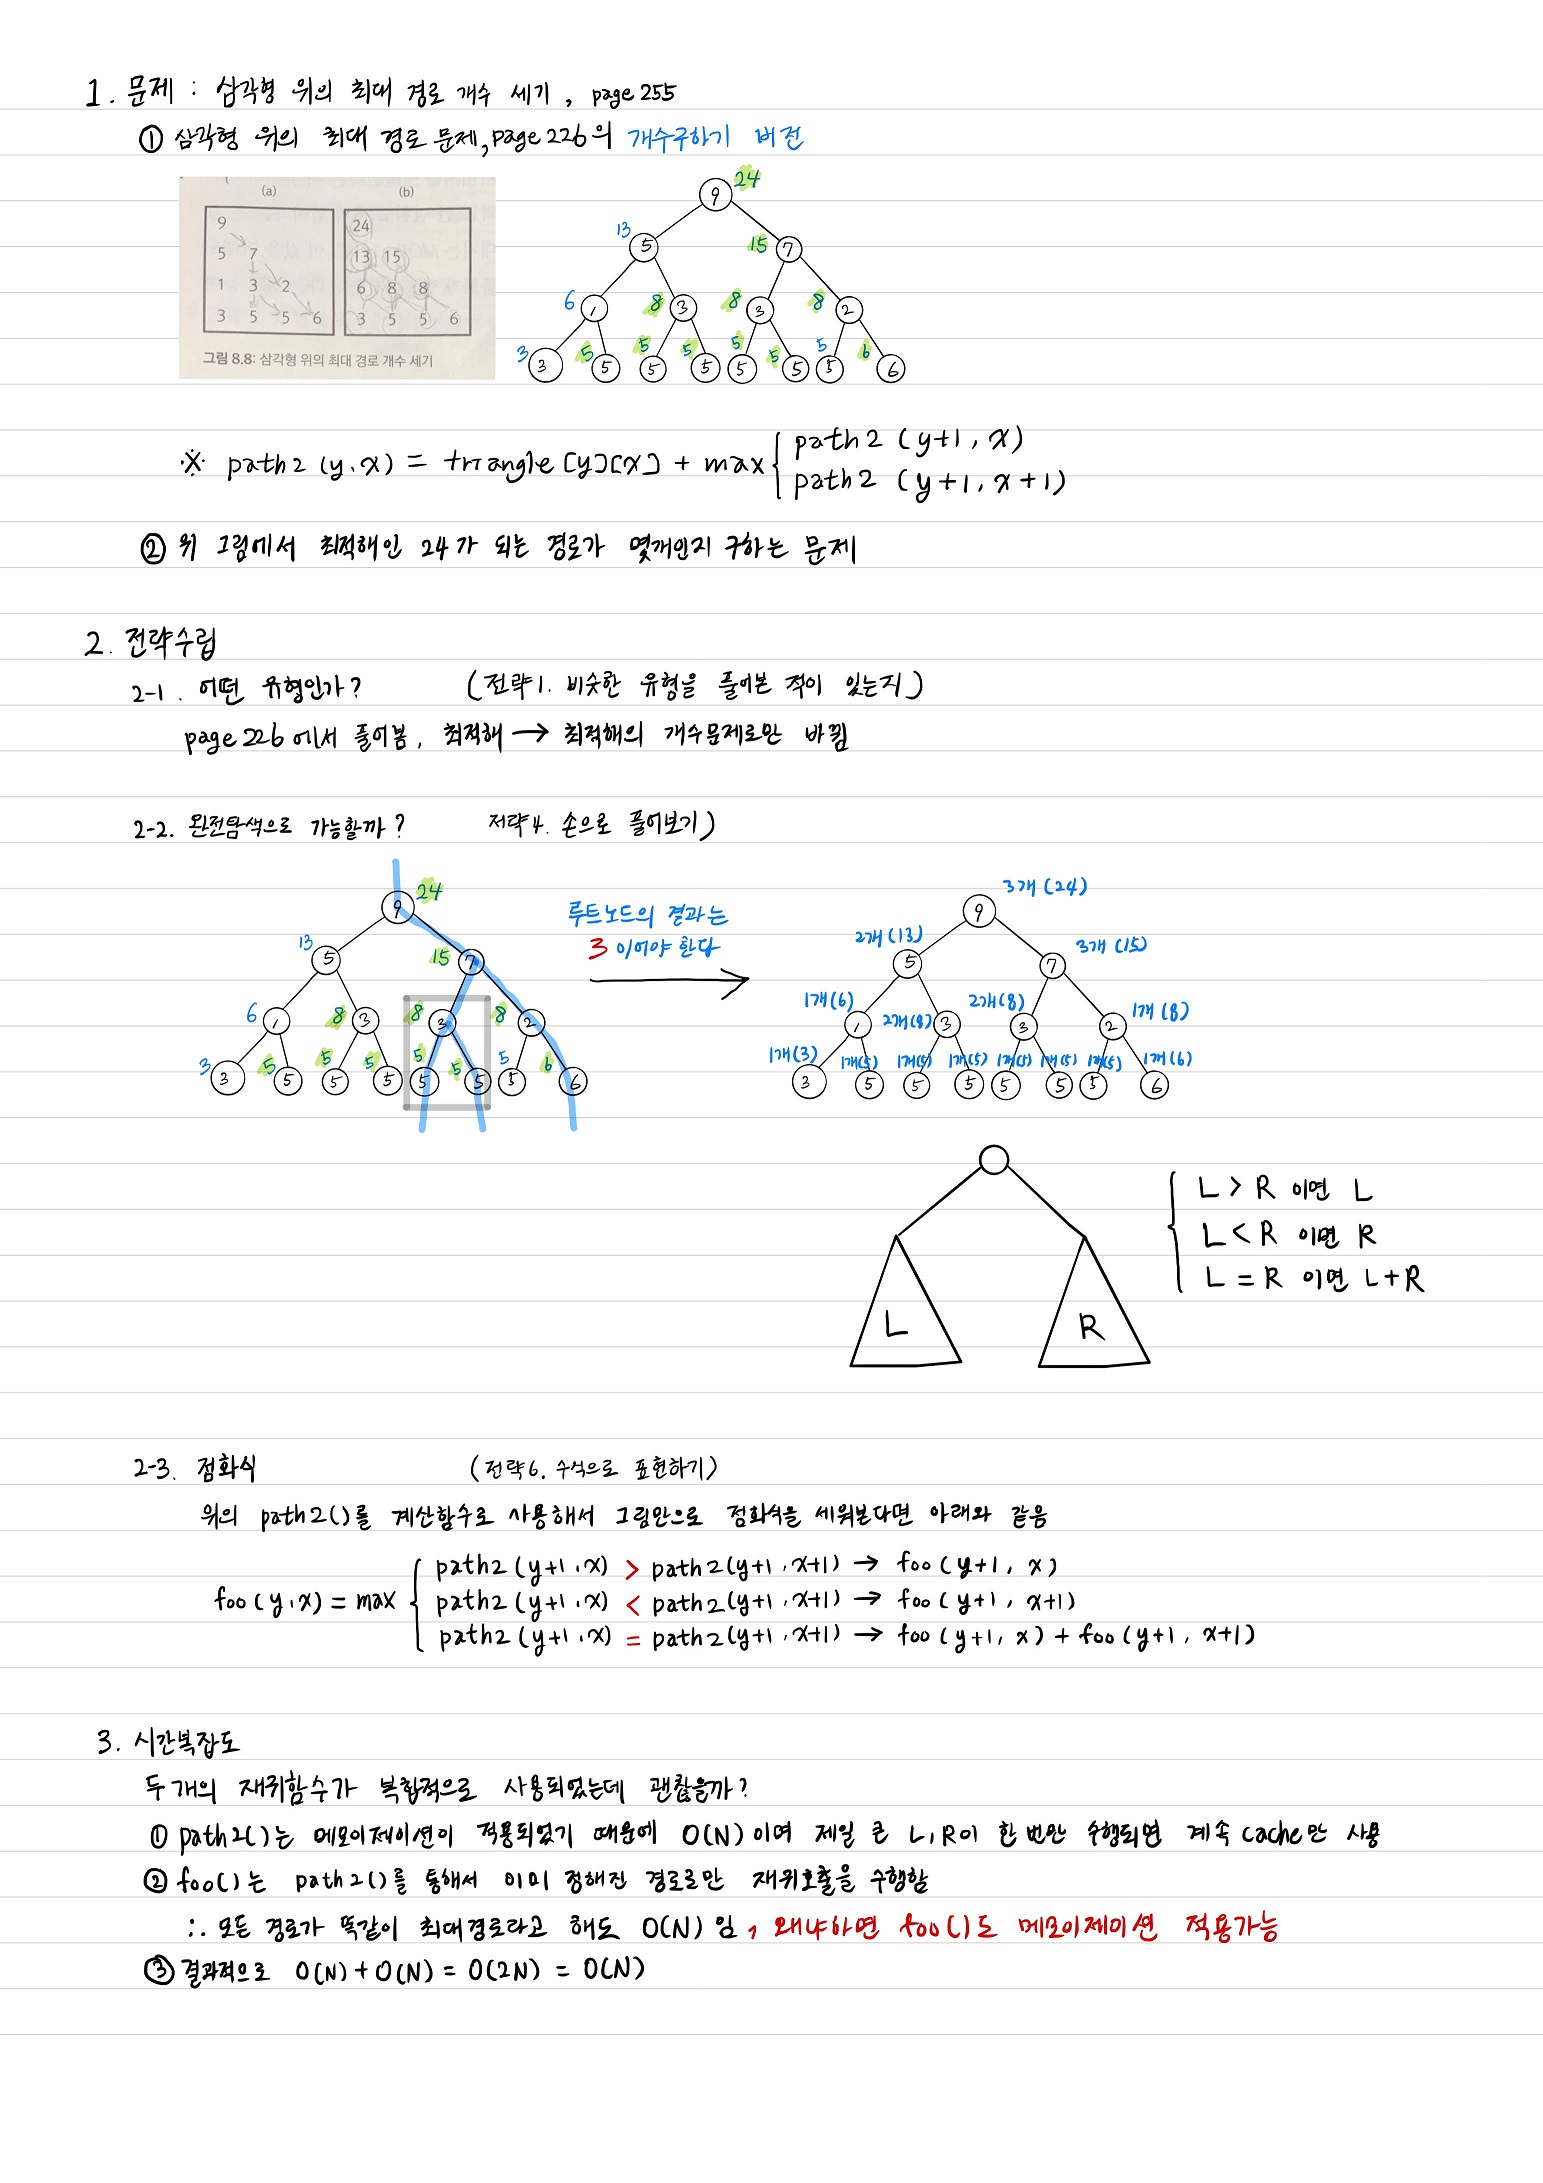 1. 문제 : 삼각형 위의 최대 경로 개수 세기, page 255
① 삼각형 위의 최대 경로 문제, page 226의 개수구하기 버전
(a) (b)
9
5 7
1 3 2
3 5 5 6
24
13 15
6 8 8
3 5 5 6
그림 8.8: 삼각형 위의 최대 경로 개수 세기
9 24
13 5 15 7
6 1 8 3 8 3 8 2
3 5 5 5 5 5 5 6
3 5 5 5 5 5 5 6
※ path2 (y, x) = triangle[y][x] + max
path2 (y+1, x)
path2 (y+1, x+1)
② 위 그림에서 최적해인 24가 되는 경로가 몇개인지 구하는 문제
2. 전략수립
2-1. 어떤 유형인가? (전략1. 비슷한 유형을 풀어본 적이 있는지)
page 226에서 풀어봄, 최적해 → 최적해의 개수문제로만 바뀜
2-2. 완전탐색으로 가능할까? 전략4. 손으로 풀어보기)
9 24
13 5 15 7
6 1 8 3 8 3 8 2
3 5 5 5 5 5 5 6
3 5 5 5 5 5 5 6
루트노드의 결과는
3 이어야 한다
3개(24)
9
2개(13) 3개(15)
5 7
1개(6) 2개(8) 2개(8) 1개(8)
1 3 3 2
1개(3) 1개(5) 1개(5) 1개(5) 1개(5) 1개(5) 1개(5) 1개(6)
3 5 5 5 5 5 5 6
L R
L > R 이면 L
L < R 이면 R
L = R 이면 L+R
2-3. 점화식 (전략6. 수식으로 표현하기)
위의 path2()를 계산함수로 사용해서 그림만으로 점화식을 세워본다면 아래와 같음
foo(y, x) = max
path2(y+1, x) > path2(y+1, x+1) → foo(y+1, x)
path2(y+1, x) < path2(y+1, x+1) → foo(y+1, x+1)
path2(y+1, x) = path2(y+1, x+1) → foo(y+1, x) + foo(y+1, x+1)
3. 시간복잡도
두개의 재귀함수가 복합적으로 사용되었는데 괜찮을까?
① path2()는 메모이제이션이 적용되었기 때문에 O(N)이며 제일 큰 L, R이 한 번만 수행되면 계속 cache만 사용
② foo()는 path2()를 통해서 이미 정해진 경로로만 재귀호출을 수행함
∴ 모든 경로가 똑같이 최대경로라고 해도 O(N)임, 왜냐하면 foo()도 메모이제이션 적용가능
③ 결과적으로 O(N) + O(N) = O(2N) = O(N)